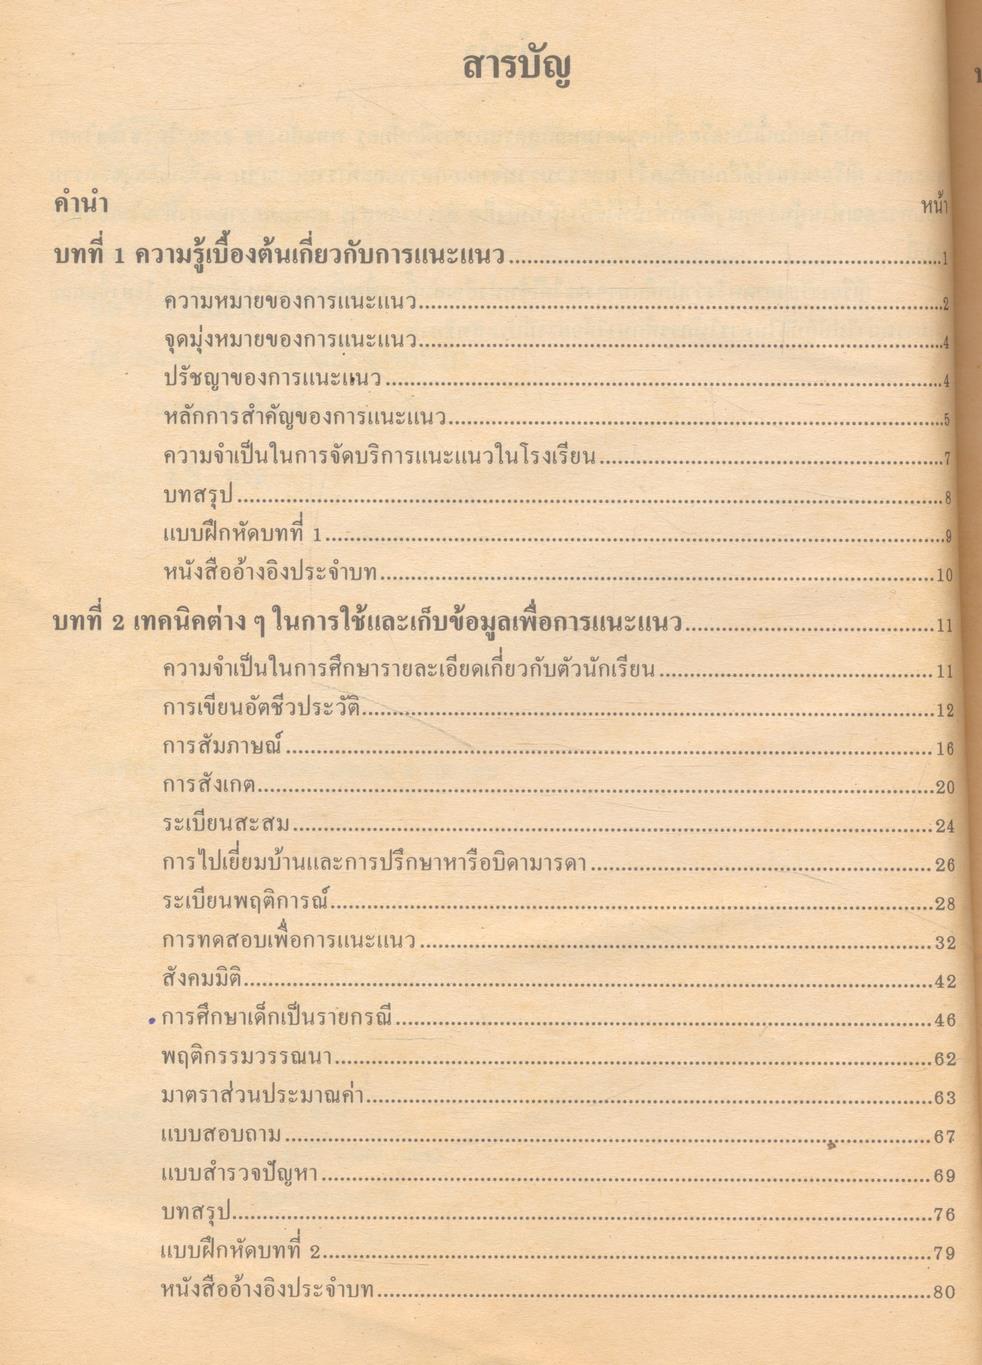 สารบัญ
คำนำ หน้า
บทที่ 1 ความรู้เบื้องต้นเกี่ยวกับการแนะแนว 1
ความหมายของการแนะแนว 2
จุดมุ่งหมายของการแนะแนว 4
ปรัชญาของการแนะแนว 4
หลักการสำคัญของการแนะแนว 5
ความจำเป็นในการจัดบริการแนะแนวในโรงเรียน 7
บทสรุป 8
แบบฝึกหัดบทที่ 1 9
หนังสืออ้างอิงประจำบท 10
บทที่ 2 เทคนิคต่าง ๆ ในการใช้และเก็บข้อมูลเพื่อการแนะแนว 11
ความจำเป็นในการศึกษารายละเอียดเกี่ยวกับตัวนักเรียน 11
การเขียนอัตชีวประวัติ 12
การสัมภาษณ์ 16
การสังเกต 20
ระเบียนสะสม 24
การไปเยี่ยมบ้านและการปรึกษาหารือบิดามารดา 26
ระเบียนพฤติการณ์ 28
การทดสอบเพื่อการแนะแนว 32
สังคมมิติ 42
การศึกษาเด็กเป็นรายกรณี 46
พฤติกรรมวรรณนา 62
มาตราส่วนประมาณค่า 63
แบบสอบถาม 67
แบบสำรวจปัญหา 69
บทสรุป 76
แบบฝึกหัดบทที่ 2 79
หนังสืออ้างอิงประจำบท 80